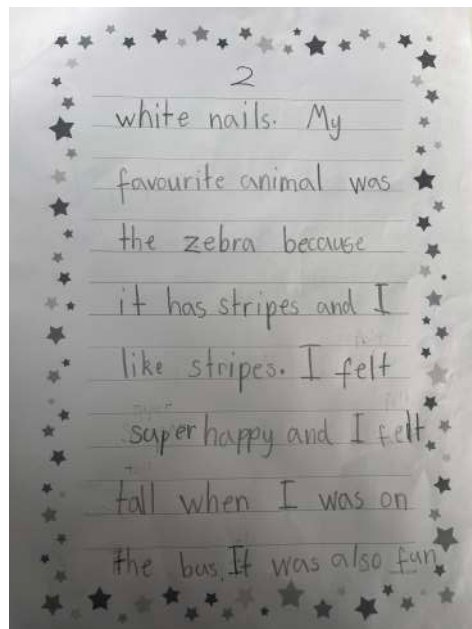 2
white nails. My
favourite animal was
the zebra because
it has stripes and I
like stripes. I felt
super happy and I felt
tall when I was on
the bus. It was also fun